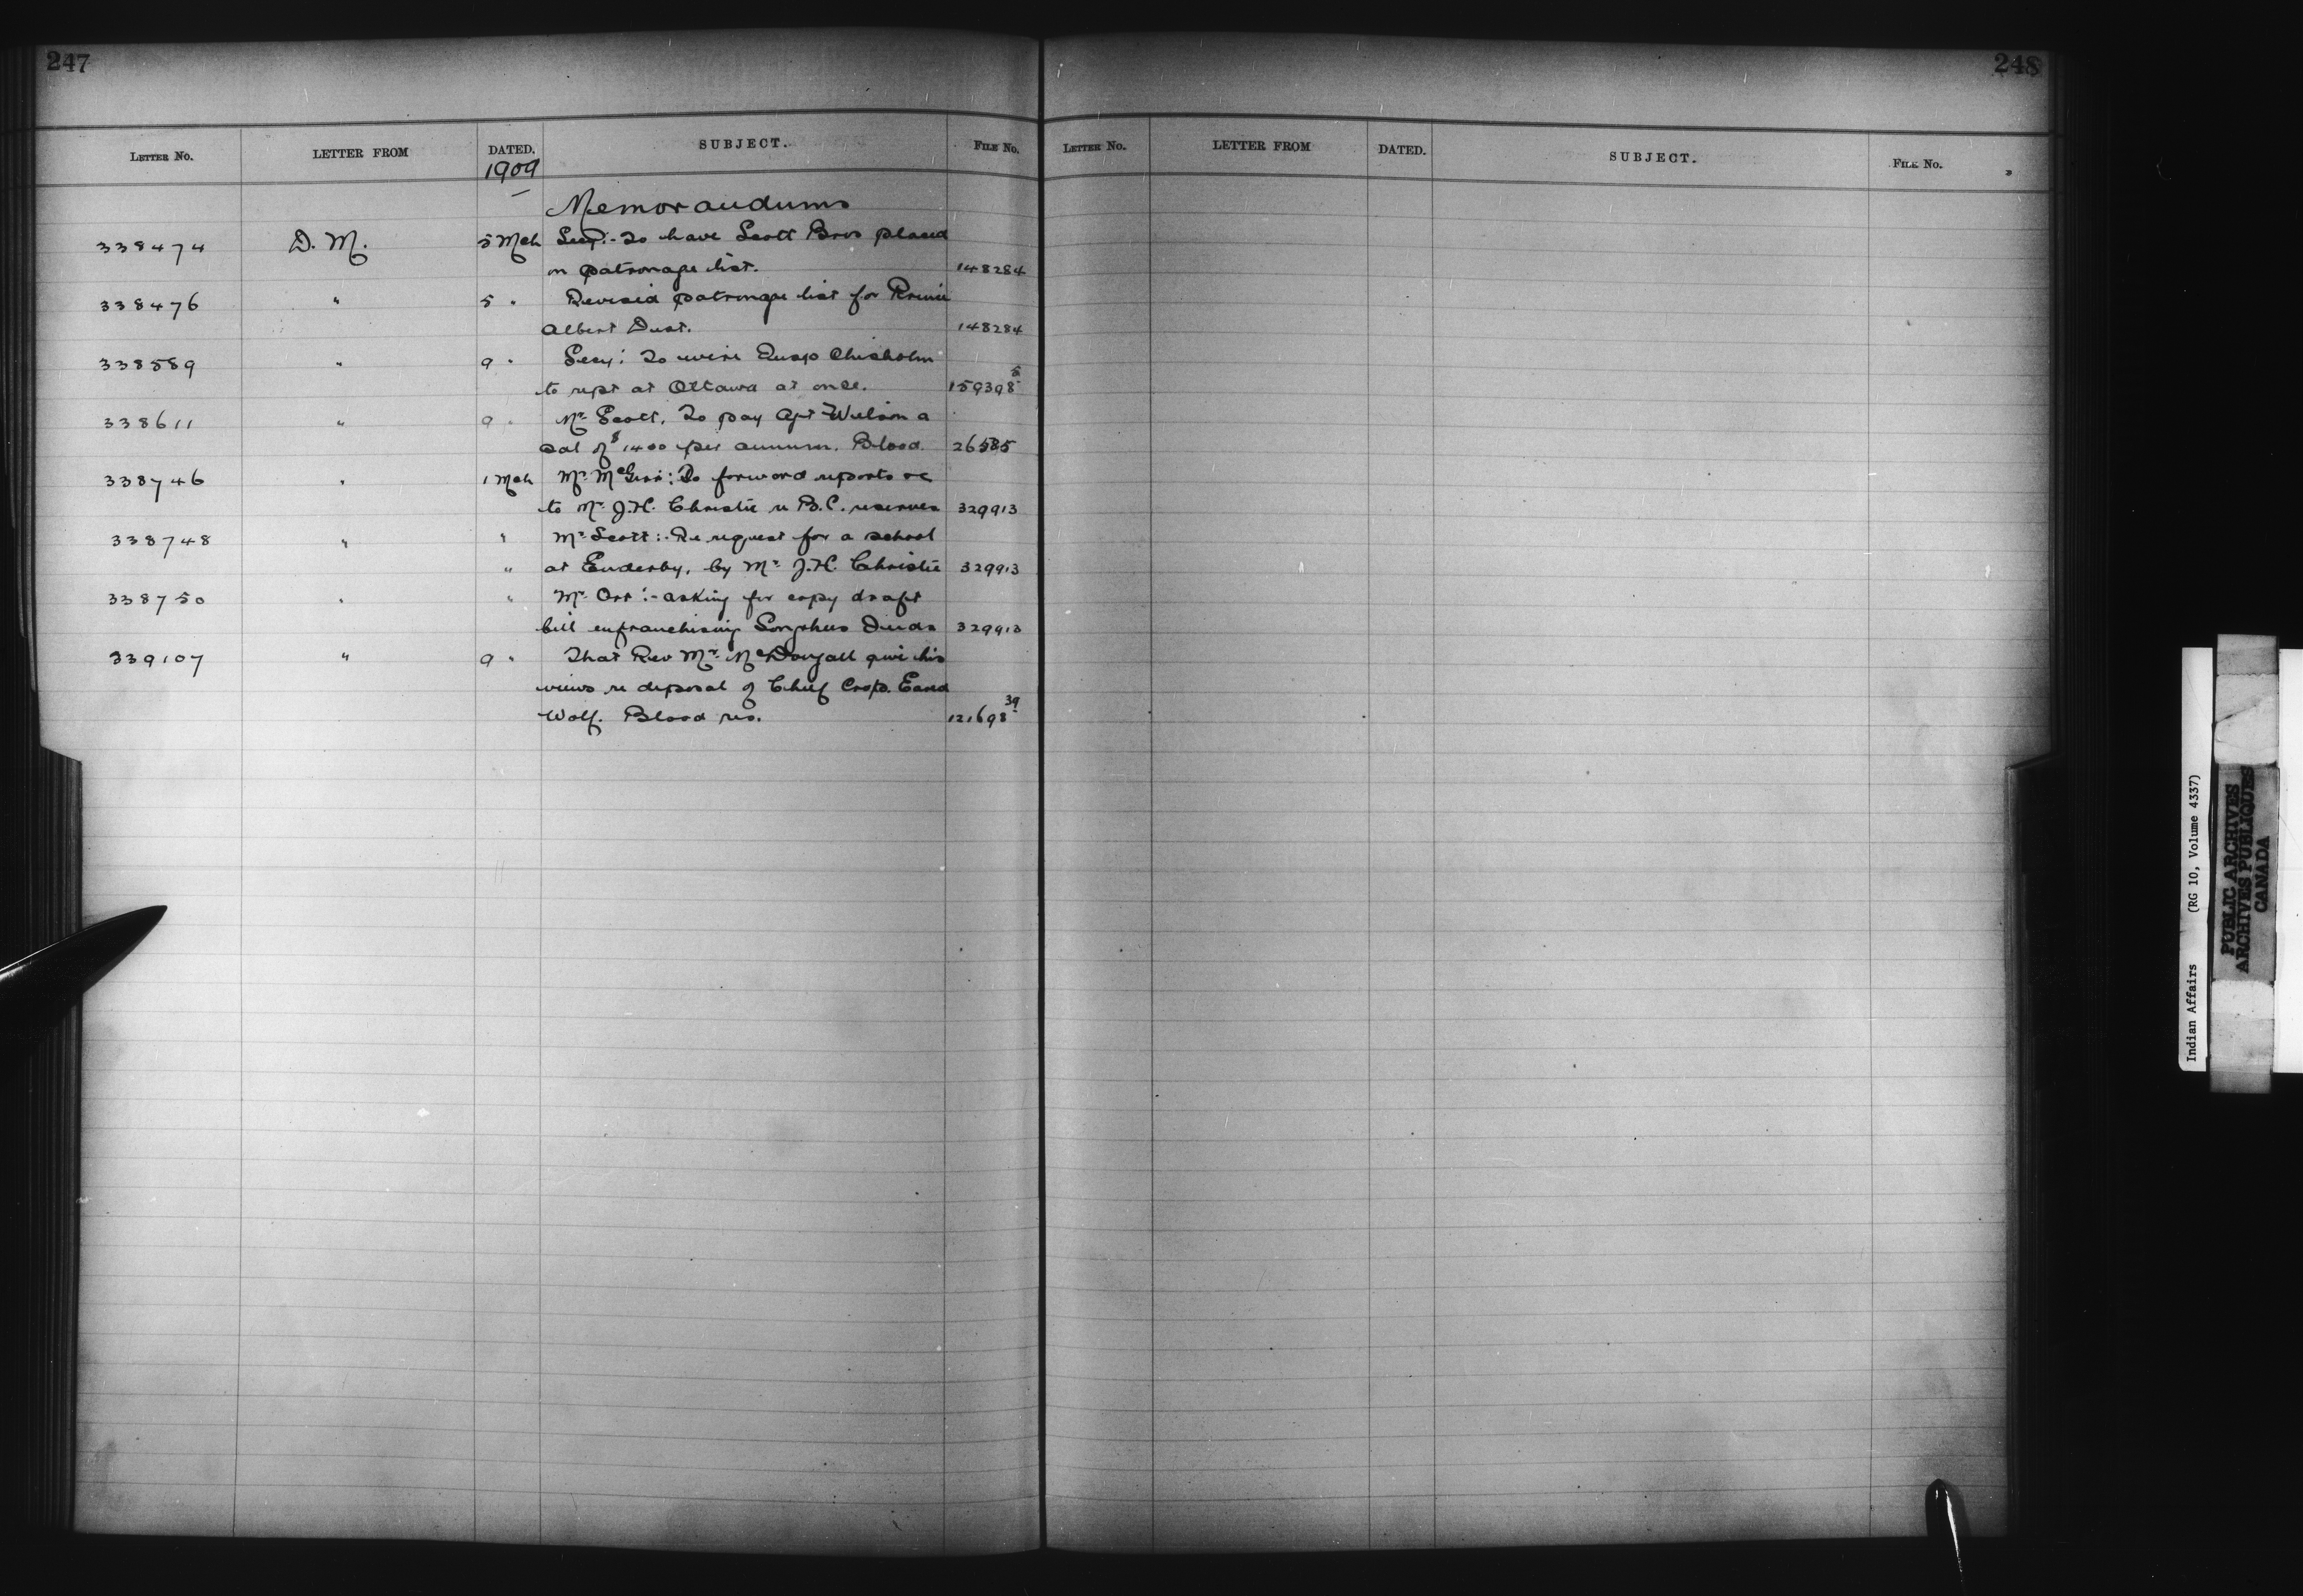 247
LETTER NO. LETTER FROM DATED. SUBJECT. FILE NO.
1909
Memorandums
338474 D. M. 5 Mch Secy:- To have Scott Bros placed
on patronage list. 148284
338476 " 5 " Revised patronage list for Prince
Albert Dist. 148284
338589 " 9 " Secy: To wire Insp Chisholm
to rept at Ottawa at once. 159398 5
338611 " 9 " Mr Scott. To pay Agt Wilson a
sal of $1400 per annum. Blood. 26585
338746 " 1 Mch Mr McGirr: To forward reports &c
to Mr J.H. Christie re B.C. reserves 329913
338748 " " Mr Scott:- Re request for a school
" at Enderby, by Mr J.H. Christie 329913
338750 " " Mr Orr:- asking for copy draft
bill enfranchising Songhees Inds 329913
339107 " 9 " That Rev Mr McDougall give his
views re deposal of Chief Crop. Eared
Wolf. Blood res. 121698 39
248
LETTER NO. LETTER FROM DATED. SUBJECT. FILE NO.
Indian Affairs (RG 10, Volume 4337)
PUBLIC ARCHIVES
ARCHIVES PUBLIQUES
CANADA